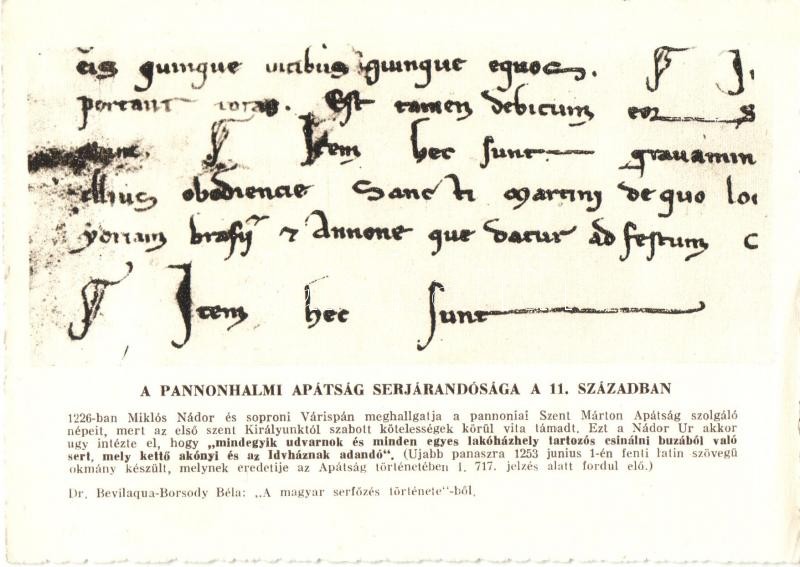 cis quinque vicibus quinque equos. ¶ I
portant Est tamen debitum eor s
sunt. ¶ Item hec sunt gravamin
illius obediencie Sancti Martini de quo loc
⁊ Annone que datur ad festum
¶ Item hec sunt
A PANNONHALMI APÁTSÁG SERJÁRANDÓSÁGA A 11. SZÁZADBAN
1226-ban Miklós Nádor és soproni Várispán meghallgatja a pannoniai Szent Márton Apátság szolgáló
népeit, mert az első szent Királyunktól szabott kötelességek körül vita támadt. Ezt a Nádor Ur akkor
ugy intézte el, hogy „mindegyik udvarnok és minden egyes lakóházhely tartozós csinálni buzából való
sert, mely kettő akónyi és az Idvháznak adandó“. (Ujabb panaszra 1253 junius 1-én fenti latin szövegű
okmány készült, melynek eredetije az Apátság történetében I. 717. jelzés alatt fordul elő.)
Dr. Bevilaqua-Borsody Béla: „A magyar serfőzés története“-ből.